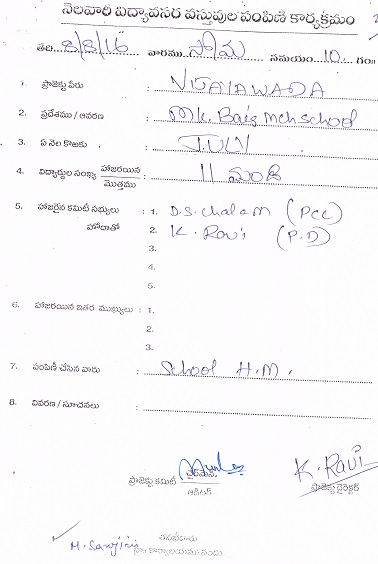 నెలవారీ విద్యావసర వస్తువుల పంపిణీ కార్యక్రమం
తేది.. 8/8/16 వారము.. సోమ సమయం... 10.. గం॥
1. ప్రాజెక్టు పేరు : VIJAYAWADA
2. ప్రదేశము / ఆవరణ : MK. Baig Mch school
3. ఏ నెల కొఱకు : JULY
4. విద్యార్థుల సంఖ్య హాజరయిన / మొత్తము : 11 మంది
5. హాజరైన కమిటీ సభ్యులు : 1. D.S. chalam (PCC)
హోదాతో 2. K. Ravi (P.D)
3.
4.
5.
6. హాజరయిన ఇతర ముఖ్యులు : 1.
2.
3.
7. పంపిణీ చేసిన వారు : School H.M.
8. వివరణ / సూచనలు :
K. Ravi
ప్రాజెక్టు కమిటీ ఛైర్మన్ ప్రాజెక్టు డైరెక్టర్
ఆడిటర్
తనిఖీదారు
M. Sarojini కార్యాలయము